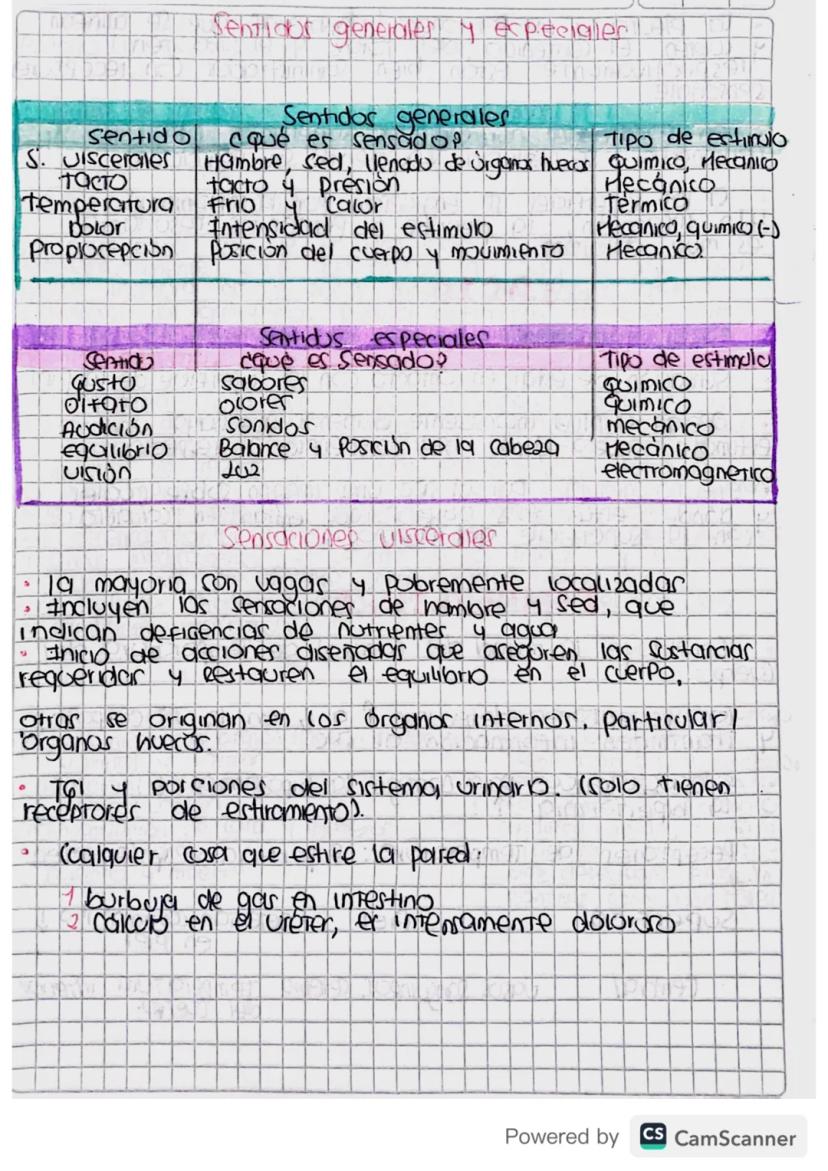 Sentidos generales y especiales
Sentidos generales
sentido ¿qué es sensado? Tipo de estimulo
S. viscerales Hambre, sed, llenado de órganos huecos quimico, Mecánico
Tacto tacto y presión Mecánico
temperatura Frio y calor térmico
Dolor Intensidad del estimulo Mecanico, quimico (-)
Propiocepción Posición del cuerpo y movimiento Mecanico
Sentidos especiales
Sentido ¿qué es Sensado? Tipo de estimulo
gusto sabores quimico
olfato olores quimico
Audición sonidos mecánico
equilibrio Balance y posición de la cabeza Mecánico
visión Luz electromagnetico
Sensaciones viscerales
• la mayoria son vagas y pobremente localizadas
• Incluyen las sensaciones de hambre y sed, que
indican deficencias de nutrientes y agua
• Inicio de acciones diseñadas que aseguren las sustancias
requeridas y Restauren el equilibrio en el cuerpo.
otras se originan en los órganos internos. particular/
órganos huecos.
• TGI y porciones del sistema urinario. (solo tienen
receptores de estiramento).
• Cualquier cosa que estire la pared
1 burbuja de gas en intestino
2 Cálculo en el Uréter, es intensamente doloroso
Powered by CS CamScanner